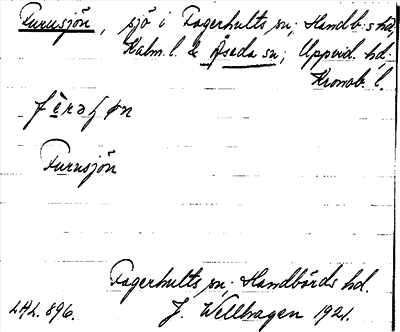 Furusjön, sjö i Fagerhults sn; Handb.s hd,
Kalm. l. & Åseda sn; Uppvid. hd;
Kronob. l.
Furusjön
Fagerhults sn; Handbörds hd.
LAL. 896. J. Wellhagen 1921.